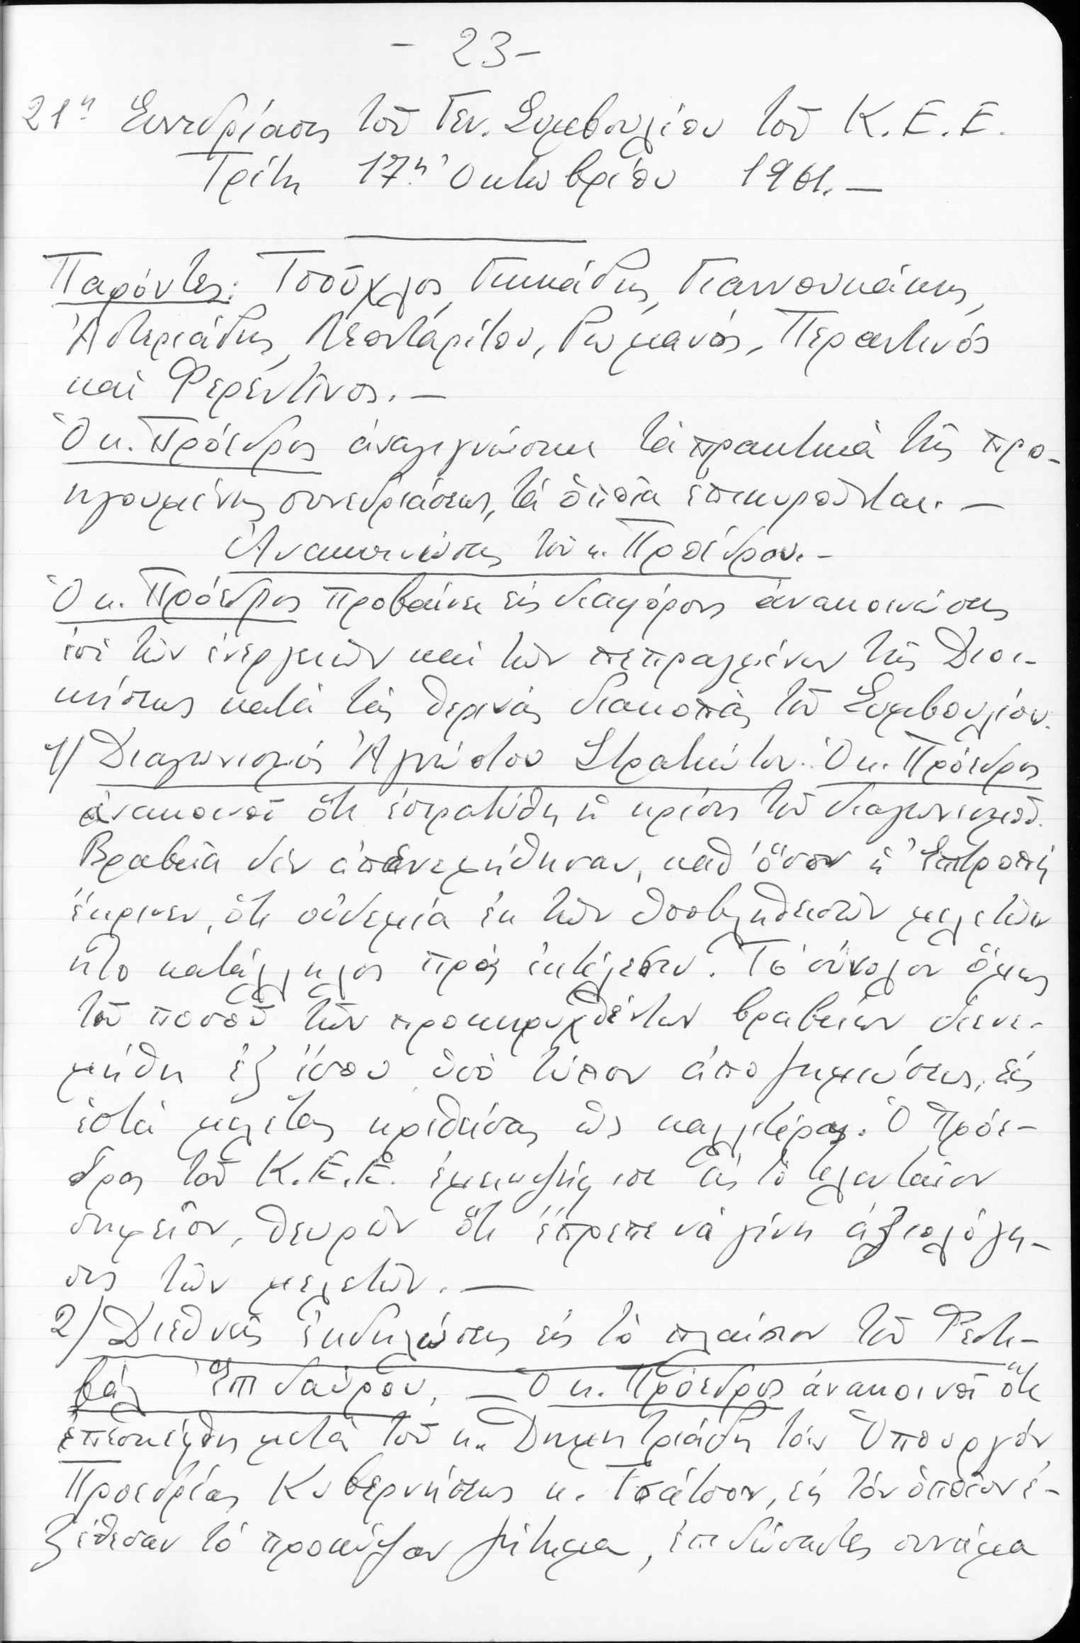 - 23 -
21η Συνεδρίασις τοῦ Γεν. Συμβουλίου τοῦ Κ.Ε.Ε.
Τρίτη 17η Ὀκτωβρίου 1961.—
Παρόντες: Τσοῦχλος, Γιαννουκάκης,
Ἀστεριάδης, Λεονταρίτου, Ρωμανός, Περαντινός
καὶ Φερεντῖνος.—
Ὁ κ. Πρόεδρος ἀναγιγνώσκει τὰ πρακτικὰ τῆς προ-
ηγουμένης συνεδριάσεως, τὰ ὁποῖα ἐπικυροῦνται.—
Ἀνακοινώσεις τοῦ κ. Προέδρου.—
Ὁ κ. Πρόεδρος προβαίνει εἰς διαφόρους ἀνακοινώσεις
ἐπὶ τῶν ἐνεργειῶν καὶ τῶν πεπραγμένων τῆς Διοι-
κήσεως κατὰ τὰς θερινὰς διακοπὰς τοῦ Συμβουλίου.
1) Διαγωνισμὸς Ἀγνώστου Στρατιώτου. Ὁ κ. Πρόεδρος
ἀνακοινοῖ ὅτι ἐπερατώθη ἡ κρίσις τοῦ διαγωνισμοῦ.
Βραβεῖα δὲν ἀπενεμήθησαν, καθ' ὅσον ἡ Ἐπιτροπὴ
ἔκρινεν, ὅτι οὐδεμία ἐκ τῶν ὑποβληθεισῶν μελετῶν
ἦτο κατάλληλος πρὸς ἐκτέλεσιν. Τὸ σύνολον ὅμως
τοῦ ποσοῦ τῶν προκηρυχθέντων βραβείων διενε-
μήθη ἐξ ἴσου ὑπὸ τύπον ἀποζημιώσεως, εἰς
ἑπτὰ μελέτας κριθείσας ὡς καλλιτέρας. Ὁ Πρόε-
δρος τοῦ Κ.Ε.Ε. ἐμειοψήφισε εἰς τὸ τελευταῖον
σημεῖον, θεωρῶν ὅτι ἔπρεπε νὰ γίνῃ ἀξιολόγη-
σις τῶν μελετῶν.—
2) Διεθνεῖς ἐκδηλώσεις εἰς τὸ πλαίσιον τοῦ Φεστι-
βὰλ Ἐπιδαύρου. — Ὁ κ. Πρόεδρος ἀνακοινοῖ ὅτι
ἐπεσκέφθη μετὰ τοῦ κ. Δημητριάδη τὸν Ὑπουργὸν
Προεδρίας Κυβερνήσεως κ. Τσάτσον, εἰς τὸν ὁποῖον ἐ-
ξέθεσαν τὸ προκύψαν ζήτημα, ἐπιδώσαντες συνάμα